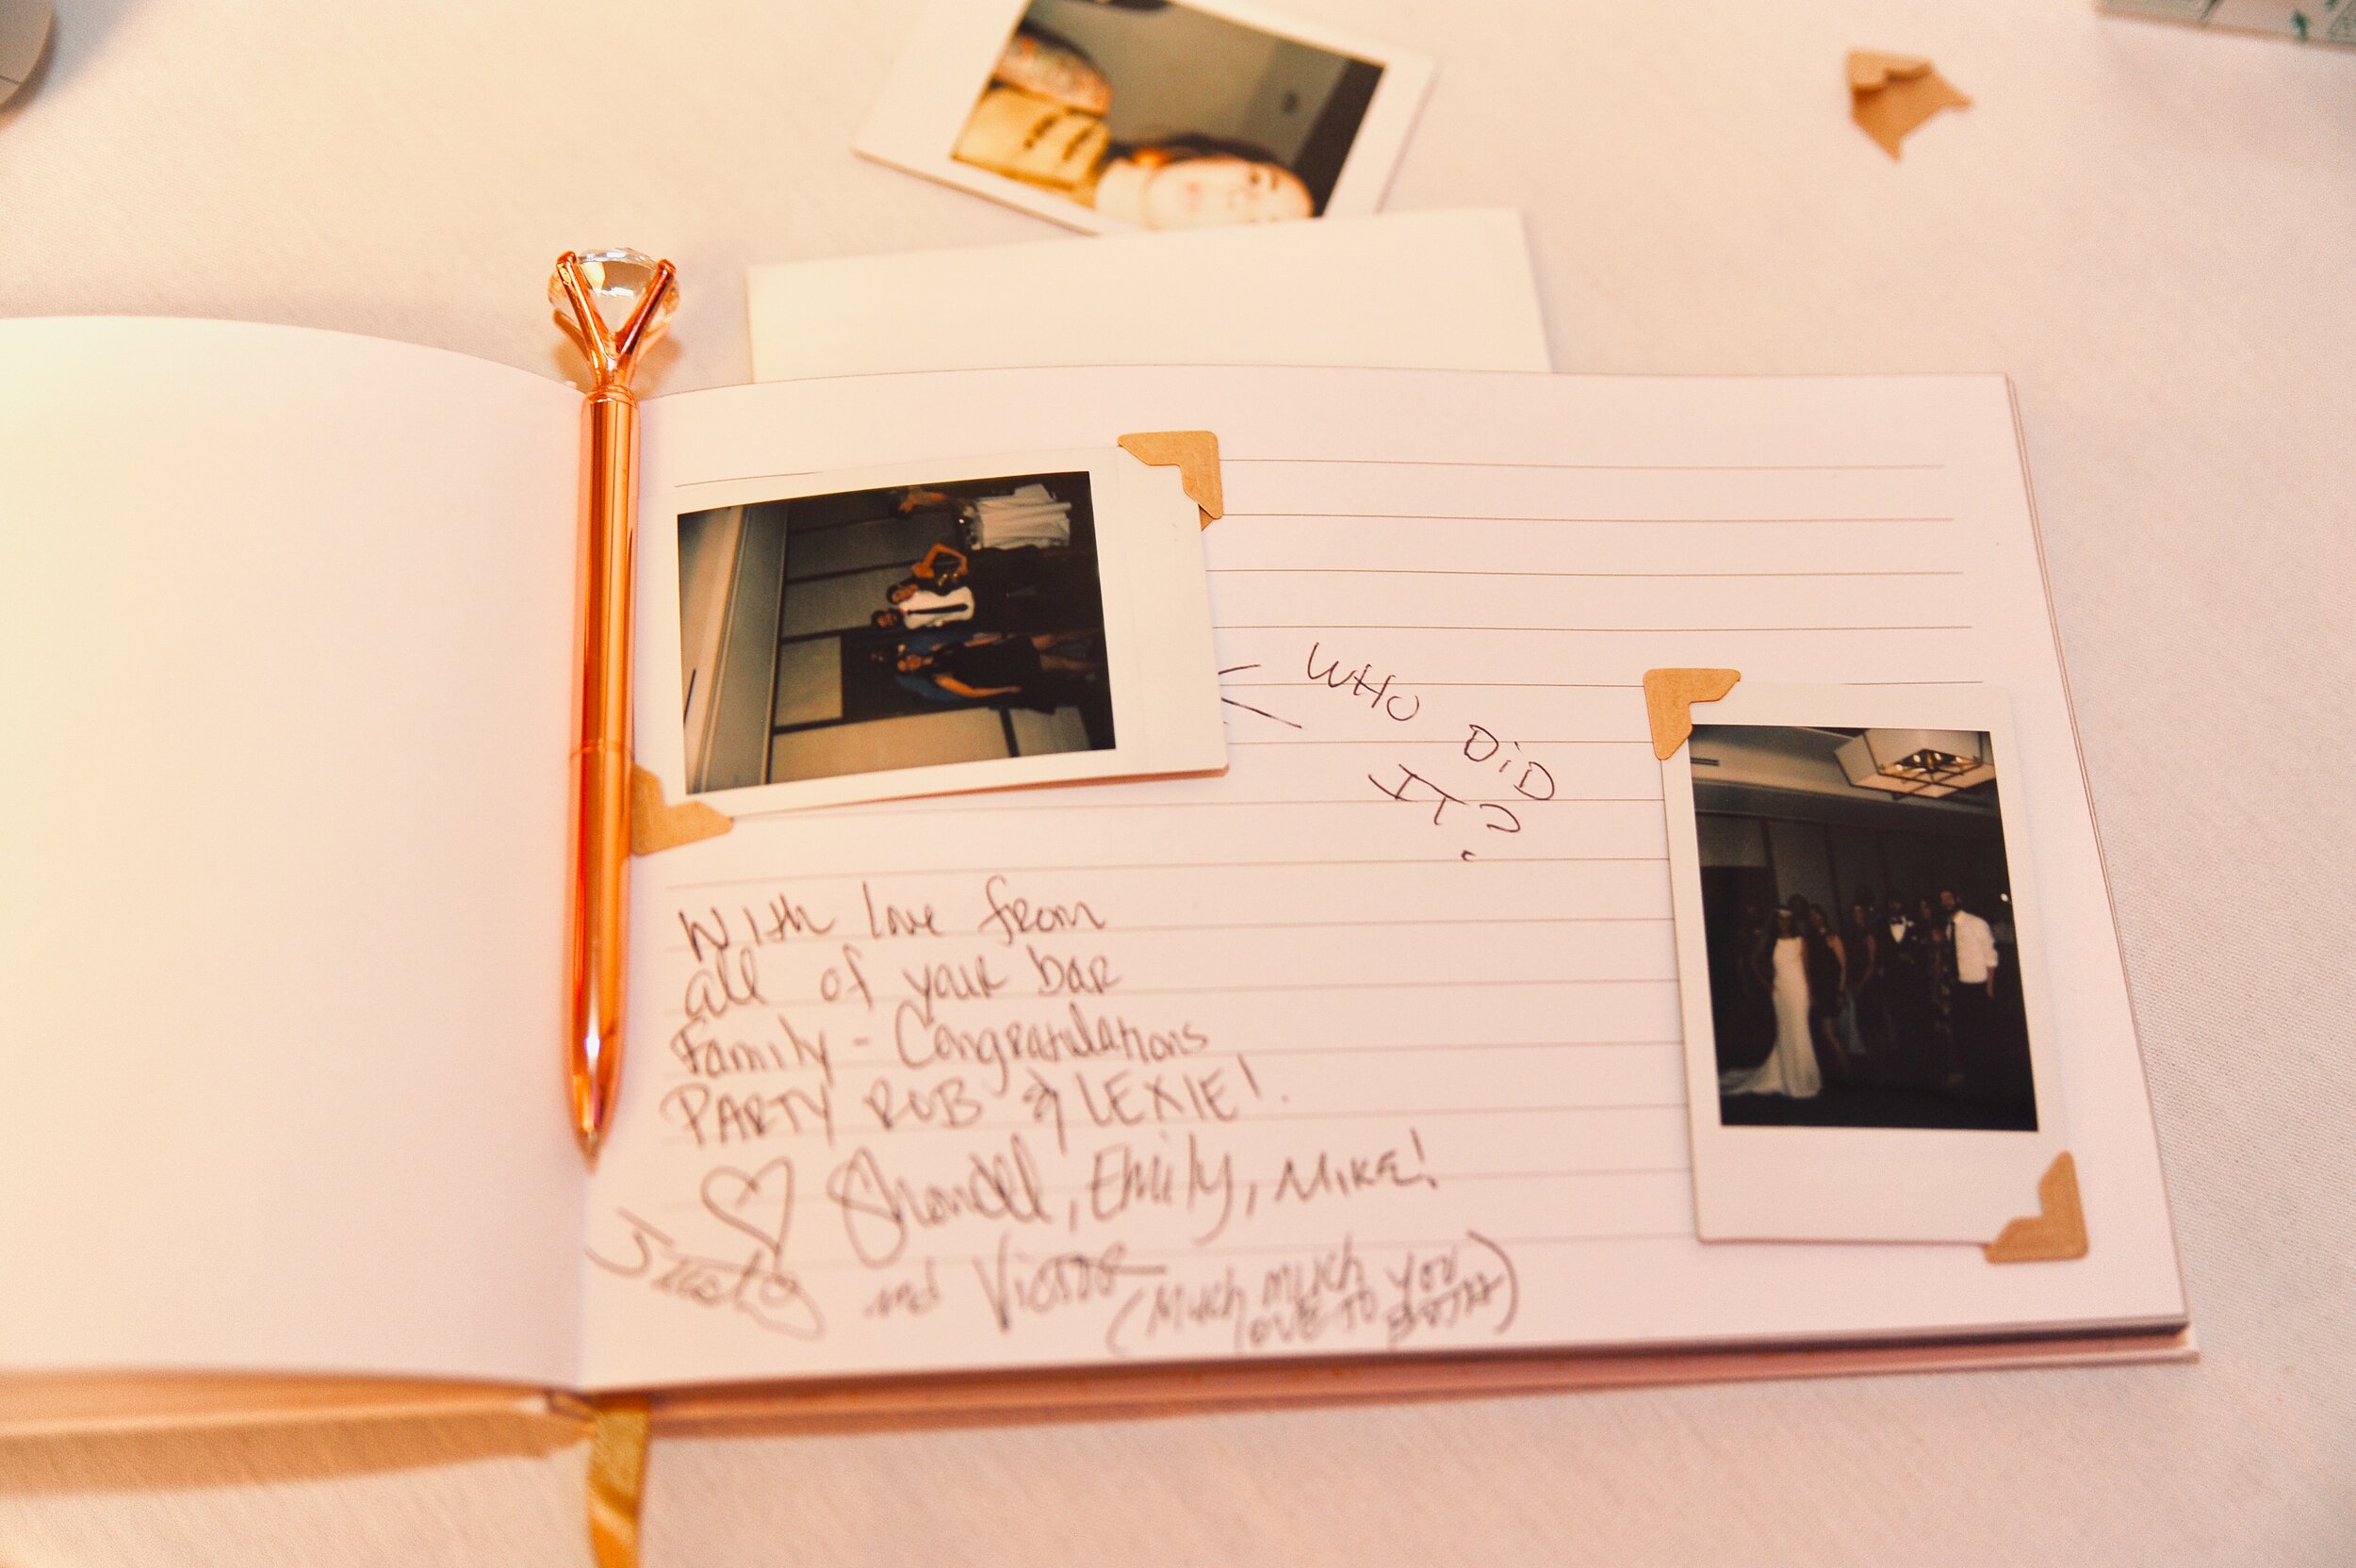 WHO DiD
IT?
With love from
all of your bar
Family - Congratulations
PARTY ROB & LEXIE!
Shondell, Emily, MIKE!
and Victor (Much much
LOVE TO YOU
BOTH)